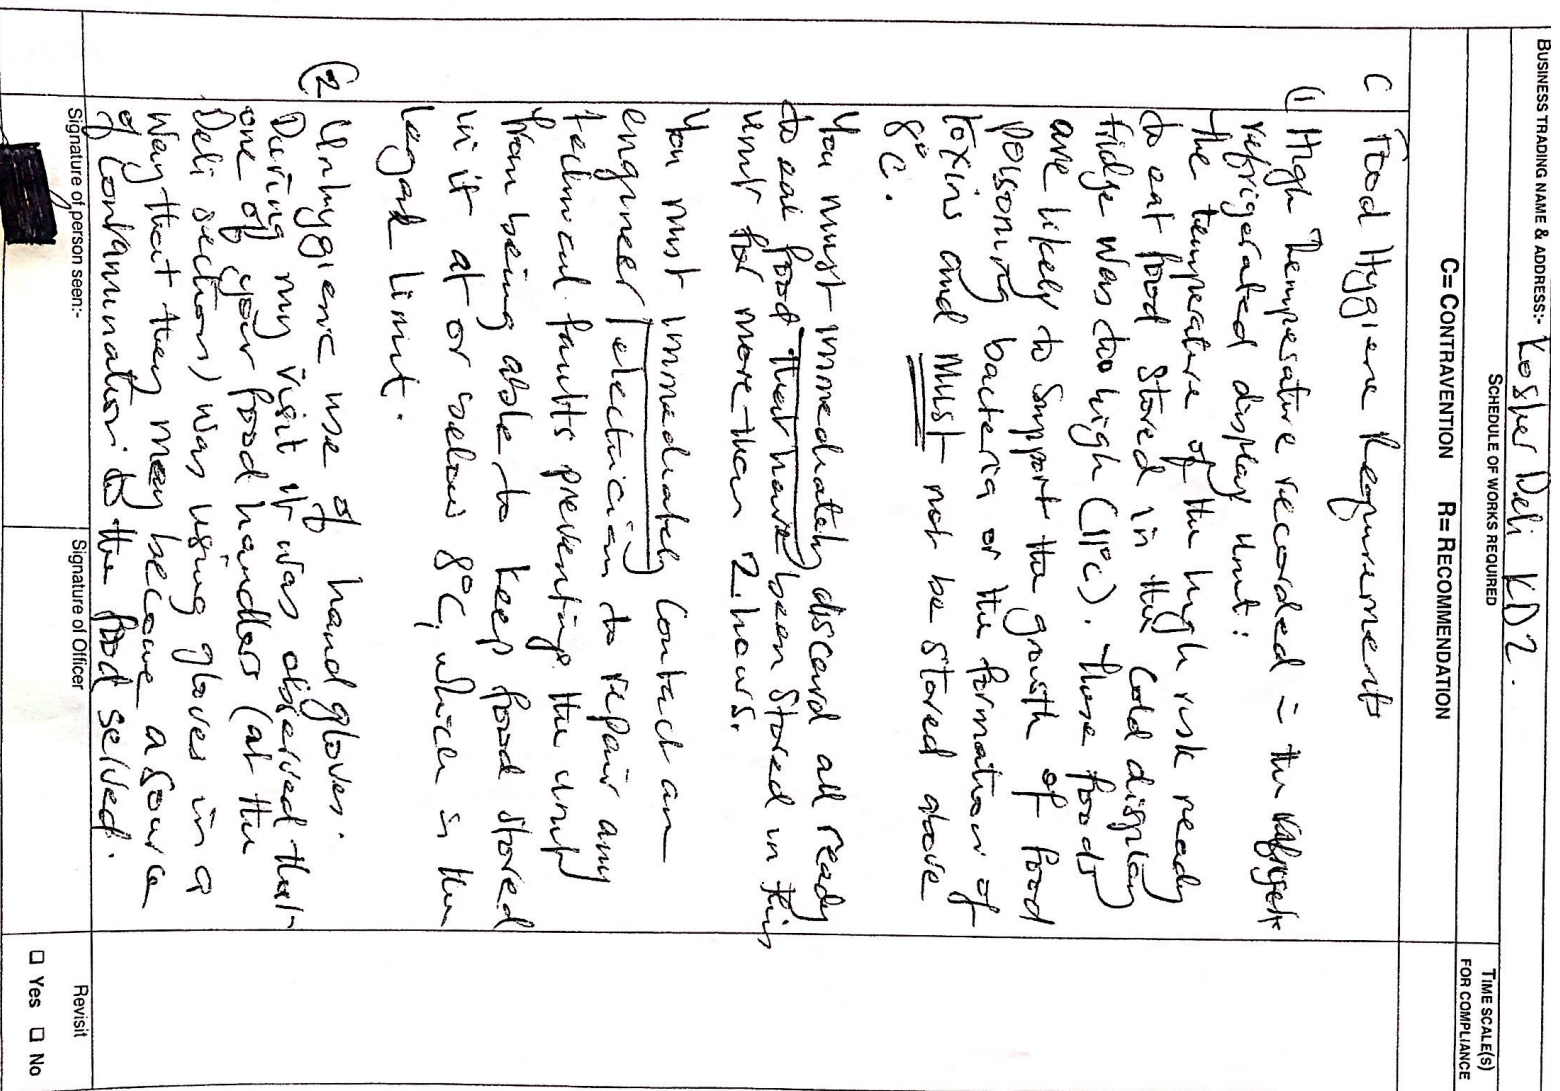 BUSINESS TRADING NAME & ADDRESS:- Kosher Deli KD2.
SCHEDULE OF WORKS REQUIRED
TIME SCALE(S)
FOR COMPLIANCE
C= CONTRAVENTION R= RECOMMENDATION
C Food Hygiene Requirements
(1 High Temperature recorded - the
refrigerated display unit:
The temperature of the high risk ready
to eat food stored in the cold display
fridge was too high (11°C). These foods
are likely to support the growth of food
poisoning bacteria or the formation of
toxins and MUST not be stored above
8°C.
You must immediately discard all ready
to eat food that have been stored in this
unit for more than 2 hours.
You must immediately contact an
engineer/electrician to repair any
technical faults preventing the unit
from being able to keep food stored
in it at or below 8°C, which is the
legal limit.
(2 Unhygienic use of hand gloves.
During my visit it was observed that
one of your food handlers (at the
Deli section) was using gloves in a
way that they may become a source
of contamination to the food served.
Signature of person seen:-
Signature of Officer
Revisit
☐ Yes ☐ No